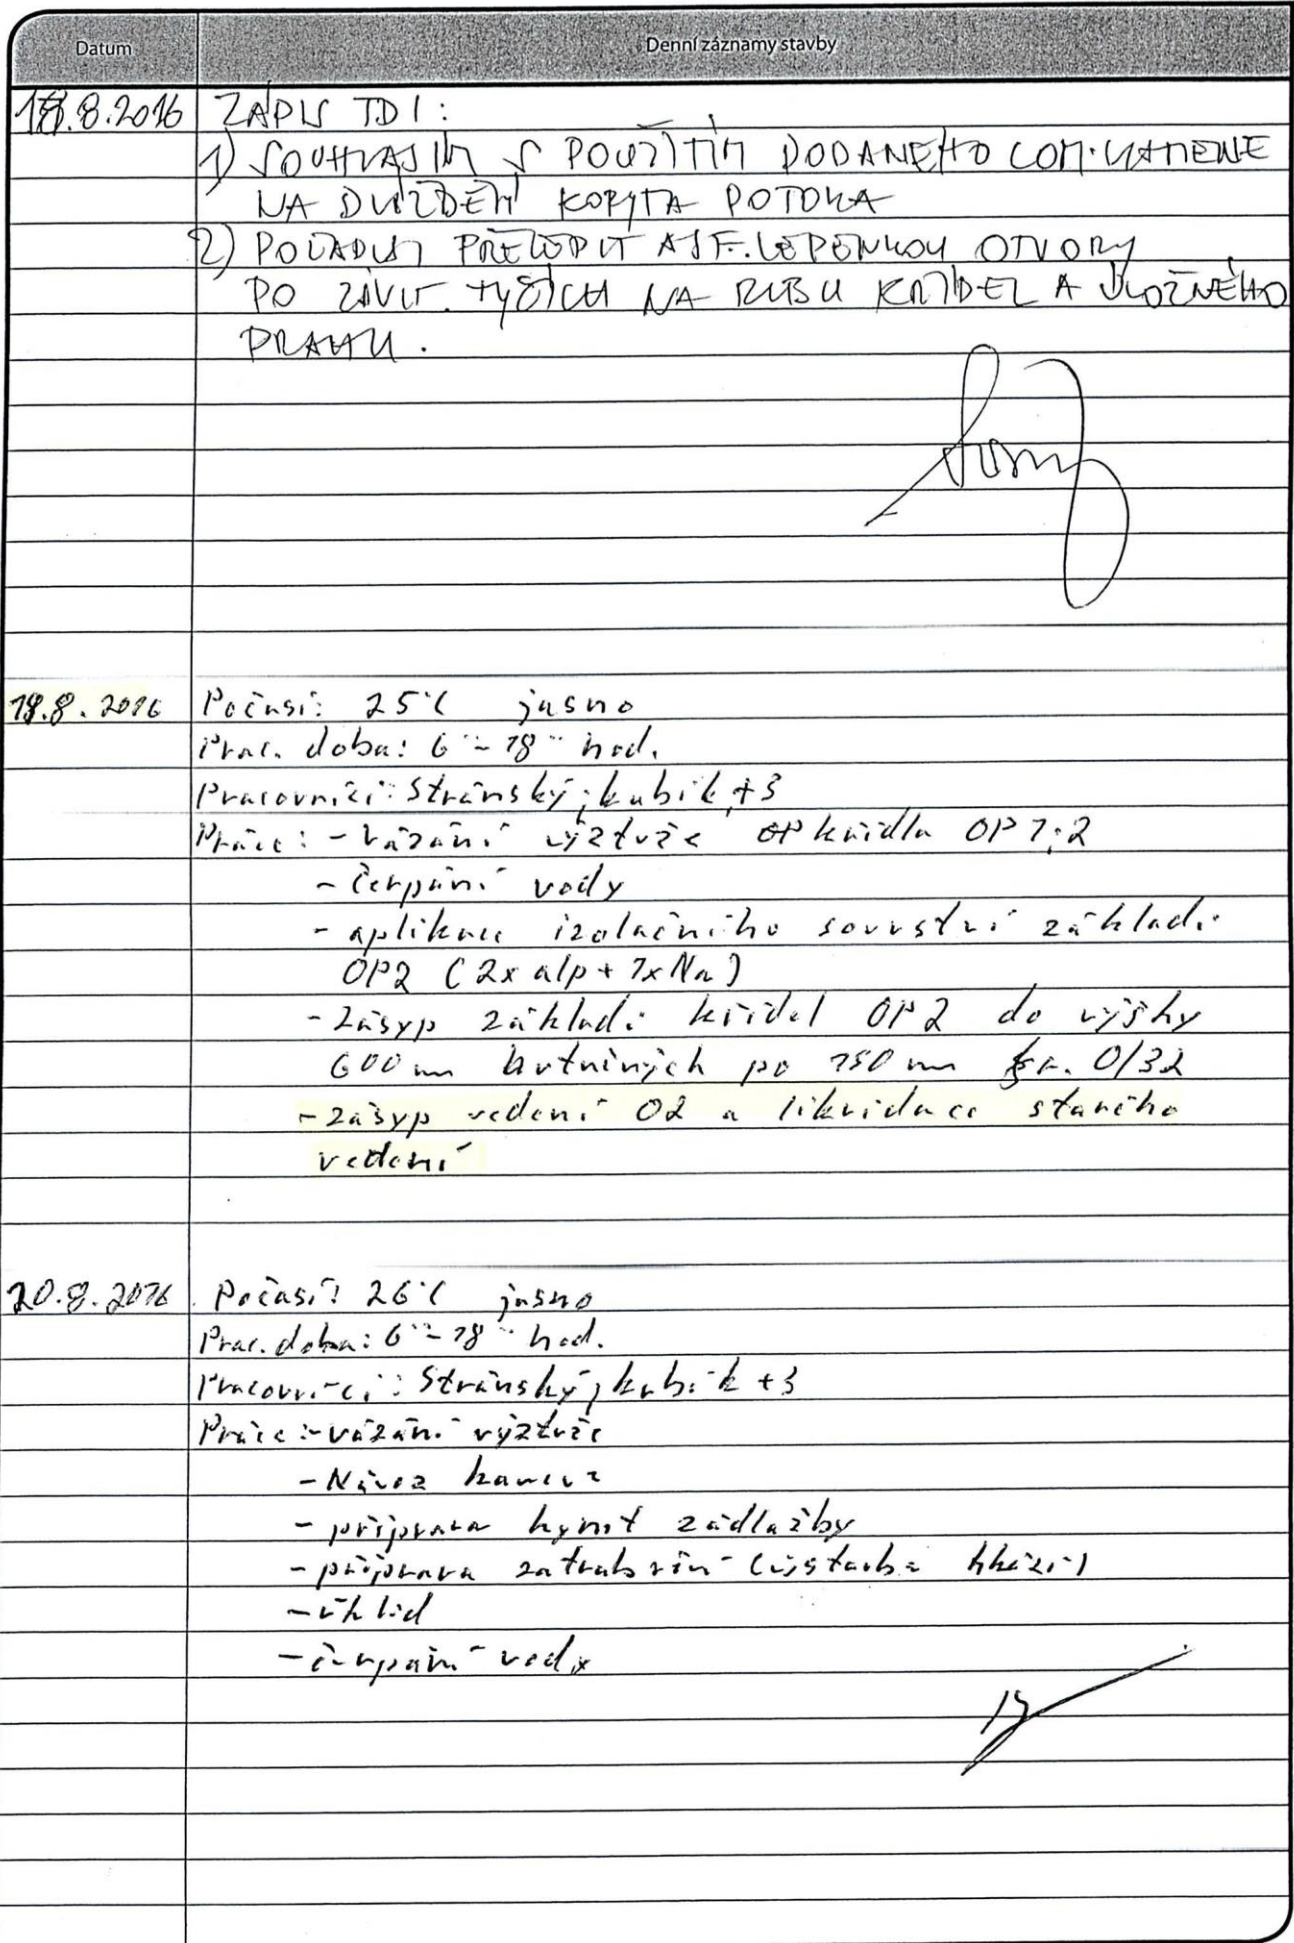 Datum Denní záznamy stavby
18.8.2016 ZÁPIS TDI:
1) SOUHLASÍM S POUŽITÍM DODANÉHO LOM. KAMENE
NA DLÁŽDĚNÍ KORYTA POTOKA
2) POŽADUJI PŘELEPIT ASF. LEPENKOU OTVORY
PO ZÁVIT. TYČÍCH NA RUBU KŘÍDEL A ÚLOŽNÉHO
PRAHU.
19.8.2016 Počasí: 25°C jasno
Prac. doba: 6°° - 18°° hod.
Pracovníci: Stránský, Kubík, +3
Práce: - vázání výztuže křídla OP 1, 2
- čerpání vody
- aplikace izolačního souvrství základů
OP2 (2x alp + 1x Na)
- Zásyp základů křídel OP2 do výšky
600 mm hutněných po 150 mm fr. 0/32
- zásyp vedení O2 a likvidace starého
vedení
20.8.2016 Počasí: 26°C jasno
Prac. doba: 6°° - 18°° hod.
Pracovníci: Stránský, Kubík +3
Práce: - vázání výztuže
- Návoz kamene
- příprava hmot zádlažby
- příprava zatrubnění (výstavba hrází)
- úklid
- čerpání vody